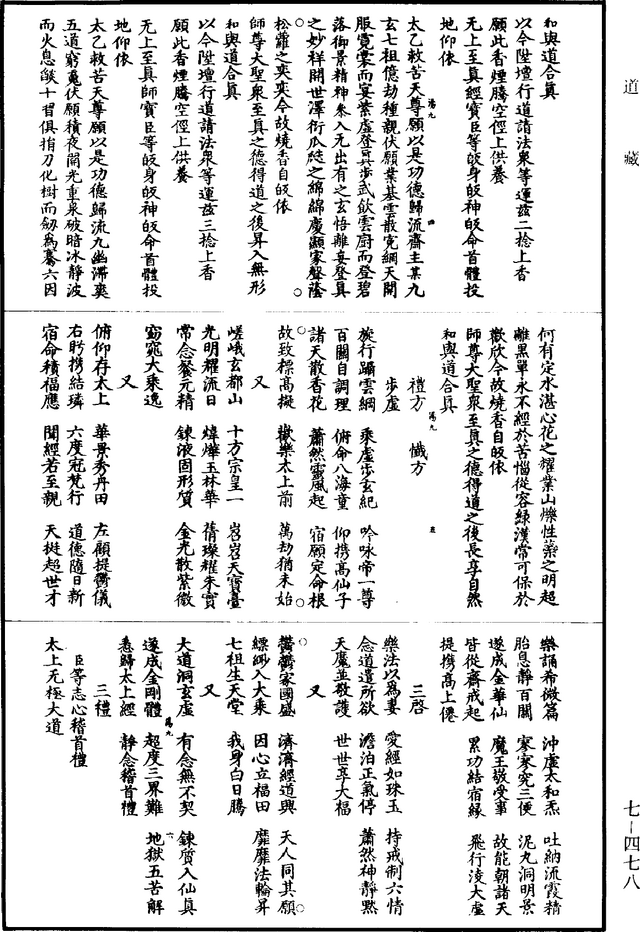 道藏
和與道合真
以今陞壇行道請法眾等運茲二捻上香
願此香煙騰空徑上供養
无上至真經寶臣等皈身皈神皈命首體投
地仰依
太乙救苦天尊願以是功德歸流齋主某九
玄七祖億劫種親伏願業基雲散寬綱天開
服霓裳而宴紫虛登真步武飲雲廚而登碧
落御景精神參入无出有之玄悟離妄登真
之妙祥開世澤衍瓜瓞之綿綿慶顯家聲蔭
松蘿之奕奕今故燒香自皈依
師尊大聖眾至真之德得道之後昇入無形
和與道合真
以今陞壇行道請法眾等運茲三捻上香
願此香煙騰空徑上供養
无上至真師寶臣等皈身皈神皈命首體投
地仰依
太乙救苦天尊願以是功德歸流九幽滯爽
五道窮魂伏願積夜開光重泉破暗冰靜波
而火息燄十習俱捐刀化樹而劒為騫六因
何有定水湛心花之耀業山爍性蘂之明超
離黑單永不經於苦惱從容綠漢常可保於
歡欣今故燒香自皈依
師尊大聖眾至真之德得道之後長享自然
和與道合真
禮方　懺方
步虛
旋行躡雲綱　乘虛步玄紀　吟咏帝一尊
百關自調理　俯命八海童　仰携高仙子
諸天散香花　蕭然靈風起　宿願定命根
故致標高擬　歡樂太上前　萬劫猶未始
又
嵯峨玄都山　十方宗皇一　岧岧天寶臺
光明耀流日　煒燁玉林華　蒨璨耀朱實
常念餐元精　鍊液固形質　金光散紫微
窈窕大乘逸
又
俯仰存太上　華景秀丹田　左顧提鬱儀
右眄携結璘　六度冠梵行　道德隨日新
宿命積福應　聞經若至親　天挺超世才
樂誦希微篇　沖虛太和炁　吐納流霞精
胎息靜百關　寥寥究三便　泥丸洞明景
遂成金華仙　魔王敬受事　故能朝諸天
皆從齋戒起　累功結宿緣　飛行淩大虛
提携高上僊
三啓
樂法以為妻　愛經如珠玉　持戒制六情
念道遣所欲　澹泊正氣停　蕭然神靜默
天魔並敬護　世世享大福
又
鬱鬱家國盛　濟濟經道興　天人同其願
縹緲入大乘　因心立福田　靡靡法輪昇
七祖生天堂　我身白日騰
又
大道洞玄虛　有念無不契　鍊質入仙真
遂成金剛體　超度三界難　地獄五苦解
悉歸太上經　靜念稽首禮
三禮
臣等志心稽首禮
太上无極大道
七—四七八